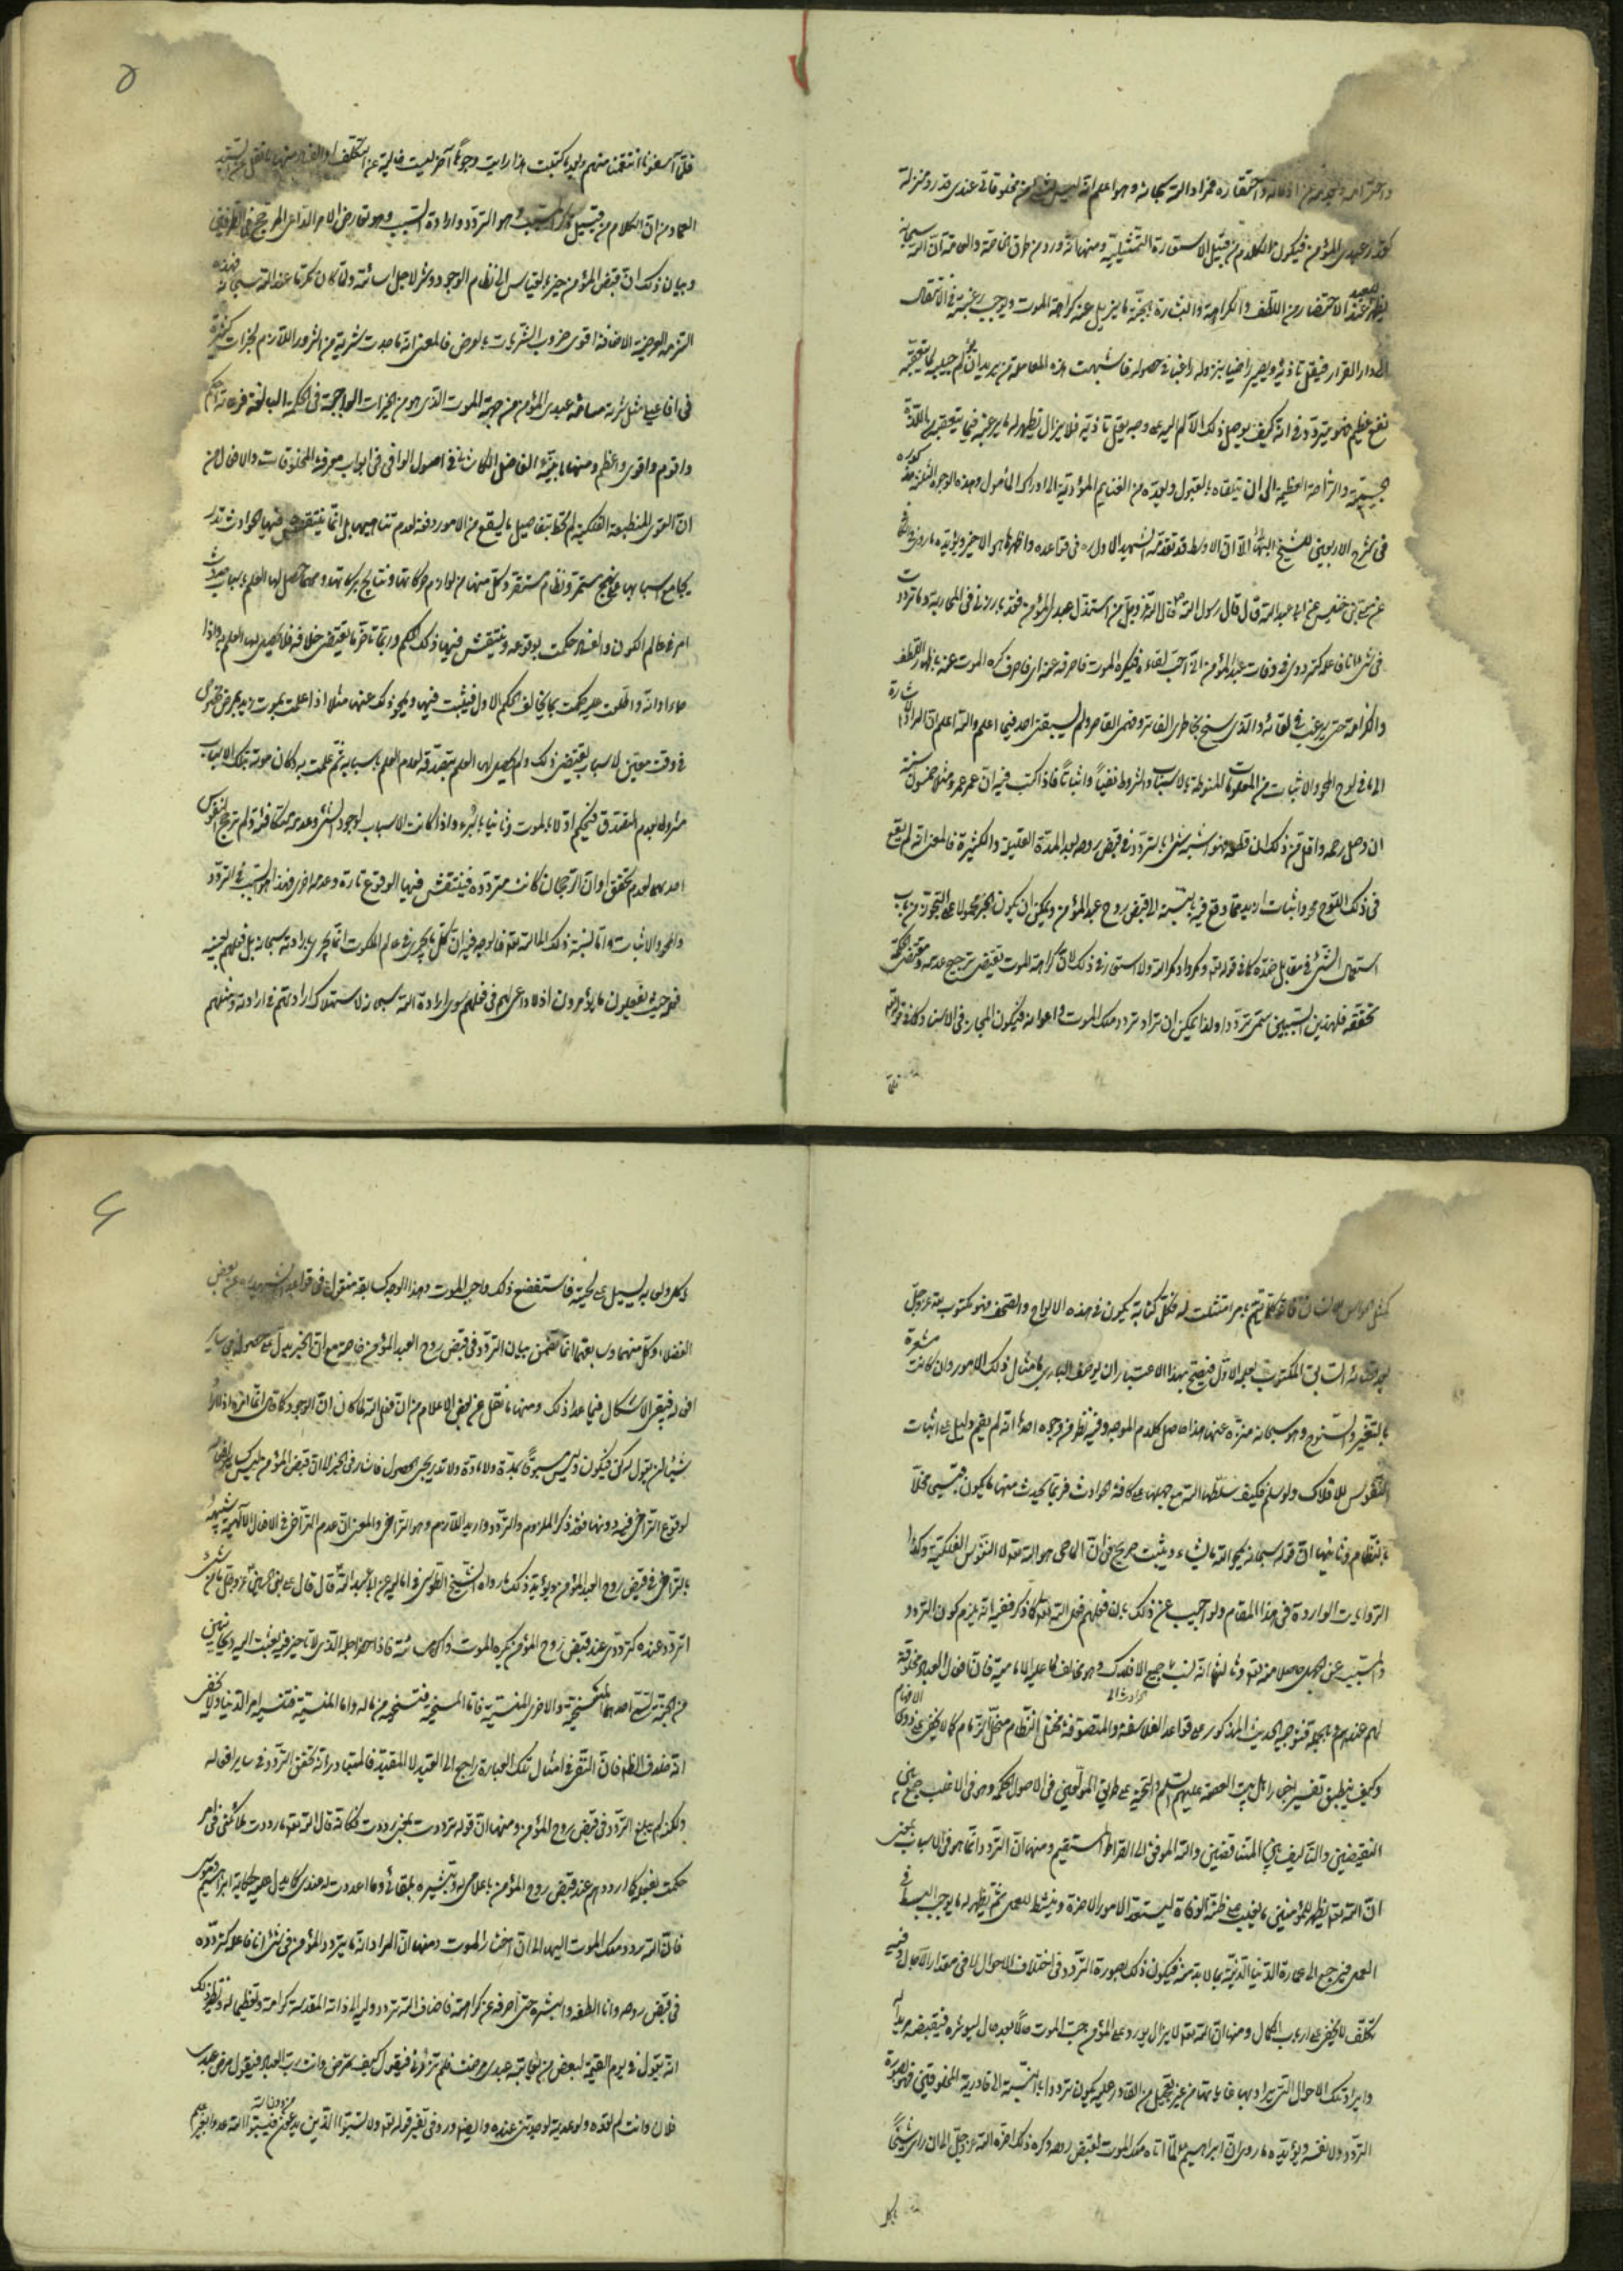 واحترامه واحتقاره فمراد الله سبحانه وهو اعلم انه ليس لشئ من مخلوقاتي عندي قدر ومنزلة
كقدر عبدي المؤمن فيكون الكلام من قبيل الاستعارة التمثيلية ومنها انه ورد من طرق الخاصة والعامة ان الله سبحانه
يظهر للعبد عند الاحتضار من اللطف والكرامة والبشارة بالجنة ما يزيل عنه كراهة الموت ويوجب رغبته في الانتقال
الى دار القرار فيقل تاذيه ويصير راضيا بنزوله راغبا في حصوله فاشبهت هذه المعاملة من يريد ان يؤلم حبيبه الما يتعقبه
نفع عظيم فهو يتردد في انه كيف يوصل ذلك الالم اليه على وجه يقل تاذيه فلا يزال يظهر له ما يرغبه فيما يتعقبه من اللذة
الجسيمة والراحة العظيمة الى ان يتلقاه بالقبول ويعده من الغنايم المؤدية الى ادراك المأمول وهذه الوجوه الثلثة مذكورة
في شرح الاربعين للشيخ البهائي الا ان الاوسط قد تقدمه الشهيد الاول ره في قواعده واظهرها هو الاخير ويؤيده ما روي
عن معلى بن خنيس عن ابي عبد الله قال قال رسول الله ص قال الله عز وجل من استذل عبدي المؤمن فقد بارزني في المحاربة وما ترددت
في شئ انا فاعله كترددي في وفات عبدي المؤمن اني احب لقاءه فيكره الموت فاصرفه عنه اي فاصرف كره الموت عنه باظهار اللطف
والكرامة حتى يرغب في لقائه والذي سنح بخاطري الفاتر وفهمي القاصر ولم يسبقني احد فيما اعلم والله اعلم ان المراد الاشارة
الى ما في لوح المحو والاثبات من المعلومات المنوطة بالاسباب والشروط نفيا واثباتا فاذا كتب فيه ان عمر عمرو مثلا خمسون سنة
ان وصل رحمه واقل من ذلك ان قطعه فهو اشبه شئ بالتردد في قبض روحه بعد المدة القليلة والكثيرة فالمعنى انه لم يقع
في ذلك اللوح محو واثبات ازيد مما وقع فيه بالنسبة الى قبض روح عبدي المؤمن ويمكن ان يكون الخبر محمولا على التجوز من باب
استعمال الشئ في مقابل ضده كما في قوله تعالى ومكروا ومكر الله ولا استعارة في ذلك لان كراهة الموت يقتضي ترجيح عدمه ومقتضى الحكمة
تحققه فلهذين السببين سمي ترددا ولذا يمكن ان يراد تردد ملك الموت واعوانه فيكون المجاز في الاسناد كما في قوله تعالى
فلما
فلما آسفونا انتقمنا منهم وبعد ما كتبت هذا رايت وجوها آخر ليست خالية عن التكلف ومنها ما نقل عن السيد
الداماد من ان الكلام من قبيل المسبب وهو التردد وارادة السبب وهو تعارض الامر الداعي المرجح في الطرفين
وبيان ذلك ان قبض المؤمن خير بالقياس الى نظام الوجود وشر لاجل اسائته ولما كان مكرما عند الله سبحانه فهذه
الشرية العرضية الاضافية اقوى ضروب الشريات بالعرض فالمعنى انه ما صدت شرية من الشرور اللازم لخيرات كثيرة
في افاعيلي مثل شرية مسائة عبدي المؤمن من جهة الموت الذي هو من الخيرات الواجبة في الحكمة البالغة
واقوم واقوى واعظم ومنها ما بينه الفاضل الكاشاني في اصول الوافي في ابواب معرفة المخلوقات والافعال من
ان القوى المنطبعة الفلكية لم تحط بتفاصيل ما سيقع من الامور دفعة لعدم تناهيها بل انما ينتقش فيها الحوادث
بجامع اسبابها على نهج مستمر ونظام مستقر وكل منها من لوازم حركاتها ونتايج بركاتها ومهما حصل لها العلم باسباب حدوث
امر في عالم الكون والفساد حكمت بوقوعه وينتقش فيها ذلك الحكم وربما تاخر ما يقتضي خلافه فلا يحصل لها العلم به واذا
جاء اوانه واطلعت عليه حكمت بخلاف الحكم الاول فيثبت فيها ويمحو ذلك عنها مثلا اذا علمت بموت زيد بمرض مخصوص
في وقت معين لاسباب يقتضي ذلك ولم يحصل لها العلم بتصدقه لعدم العلم باسبابه ثم علمت به وكان موته بتلك الاسباب
مشروطا بعدم التصدق فيحكم اولا بالموت وثانيا بالبرء واذا كانت الاسباب لوجود الشئ وعدمه متكافئة ولم ترجح النفوس
احدهما لعدم تحقق اوان الرجحان كانت مترددة فينتقش فيها الوقوع تارة وعدمه اخرى فهذا هو السبب في التردد
والمحو والاثبات واما نسبة ذلك الى الله تعالى فالوجه فيه ان كل ما يجري في عالم الملكوت انما يجري بارادته سبحانه بل فعلهم بعينه
فعله حيث يفعلون ما يؤمرون اذ لا داعي لهم في فعلهم سوى ارادة الله سبحانه لاستهلاك ارادتهم في ارادته ومثلهم
كمثل الحواس للانسان فانه كلما تم بامر امتثلت له فكل كتابة يكون في هذه الالواح والصحف فهو مكتوب لله عز وجل
بعد قضائه السابق المكتوب بقلمه الاول فيصح بهذا الاعتبار ان يوصف الباري بامثال ذلك الامور وان كانت مشعرة
بالتغير والسنوح وهو سبحانه منزه عنها هذا حاصل كلام الموجه وفيه نظر من وجوه احدها انه لم يقم دليل على اثبات
النفوس للافلاك ولو سلم فكيف سلطها الله مع جهلها على كافة الحوادث فربما يحدث منها ما يكون قبيحا مخلا
بالنظام وثانيها ان قوله سبحانه يمحو الله ما يشاء ويثبت صريح في ان الماحي هو الله تعالى لا النفوس الفلكية وكذا
الروايات الواردة في هذا المقام ولو اجيب عن ذلك بان فعلهم فعل الله تعالى كما ذكر ففيه انه يلزم كون التردد
المسبب عن الجهل حاصلا منه تعالى وثالثها انه نسب جميع الحوادث الى الافلاك وهو مخالف لما عليه الامامية فان افعال العباد مخلوقة
لهم عندهم وبالجملة فتوجيه الحديث المذكور على قواعد الفلاسفة والمتصوفة مختل النظام منحل الزمام كما لا يخفى على ذوي الافهام
وكيف ينطبق تفسير اخبار اهل بيت العصمة عليهم السلام والتحية على طريق المولعين في الاصول الحكمية وهو في الاغلب جمع بين
النقيضين والتأليف بين المتناقضين والله الموفق الى الصراط المستقيم ومنها ان التردد انما هو في الاسباب بمعنى
ان الله تعالى يظهر للمؤمنين ما يغلب على ظنه الوفاة ليستعد الامور الاخرة وينشط للعمل ثم يظهر له ما يوجب البسط في
العمل فيرجع الى عمارة الدنيا الدنية بما لابد منه فيكون ذلك بصورة التردد في اختلاف الاحوال لا في مقدار الآجال وفيه
تكلف لا يخفى على ارباب الكمال ومنها ان الله تعالى لا يزال يورد على المؤمن حب الموت حالا بعد حال ليؤثره فيقبضه مريدا له
وايراد تلك الاحوال التي يراد بها غاياتها من غير تعجيل من القادر عليه يكون ترددا بالنسبة الى قادرية المخلوقين فهو بصورة
التردد ولا نفسه ويؤيده ما روي ان ابراهيم لما اتاه ملك الموت لقبض روحه وكره ذلك اخره الله عز وجل الى ان راى شيخا
ياكل
ياكل ولعابه يسيل على لحيته فاستفضع ذلك واحب الموت وهذا الوجه كسابقه منقول في قواعد الشهيد ره عن بعض
الفضلاء وكل منهما وسابقهما انما يتضمن بيان التردد في قبض روح العبد المؤمن خاصة مع ان الخبر يدل على حصوله في ساير
افعاله فبقي الاشكال فيما عدا ذلك ومنها ما نقل عن بعض الاعلام من ان فعل الله لما كان ان الوجود كما قال انما امره اذا اراد
شيئا ان يقول له كن فيكون وليس مسبوقا بمدة ولا مادة ولا تدريجي الحصول فاشار في الخبر الا ان قبض المؤمن ليس كساير افعاله
لوقوع التراخي فيه دونها فقد ذكر الملزوم والتردد واريد اللازم وهو التراخي والمعنى ان عدم التراخي في الافعال الالهية شبيهة
بالتراخي في قبض روح العبد المؤمن ويؤيد ذلك ما رواه الشيخ الطوسي في اماليه عن ابي عبد الله ع قال قال علي بن الحسين ع قال الله عز وجل ما من شئ
اتردد عنده كترددي عند قبض روح المؤمن يكره الموت واكره مسائته فاذا حضر اجله الذي لا تاخير فيه بعثت اليه ريحانتين
من الجنة تسمى احدهما المسخية والاخرى المنسية فاما المسخية فتسخيه من ماله واما المنسية فتنسيه امر الدنيا ولا يخفى
انه خلاف الظاهر فان النفي في امثال تلك العبارة راجع الى القيد لا المقيد فالمتبادر انه تحقق التردد في ساير افعاله
ولكنه لم يبلغ التردد في قبض روح المؤمن ومنها ان قوله ترددت بمعنى رددت فكانه قال الله تعالى ما رددت ملائكتي في امر
حكمت بفعله كما ارددهم عند قبض روح المؤمن باعلامي له وتبشيره بلقائي وما اعددت له عندي كما يدل عليه حكاية ابراهيم وموسى
فان الله ردد ملك الموت اليهما الى ان اختارا الموت ومنها ان المراد انه ما يتردد المؤمن في شئ انا فاعله كتردده
في قبض روحه وانا الطفه وابشره حتى اصرفه عن كراهته فاضاف الله تردد وليه الى ذاته المقدسة كرامة وتعظيما له ونظير ذلك
انه يقول في يوم القيمة لبعض من يعاتبه عبدي مرضت فلم تزرني فيقول كيف تمرض وانت رب العباد فيقول مرض عبدي
فلان وانت لم تعده ولو عدته لوجدتني عنده وايضا ورد في تفسير قوله تعالى ولا تسبوا الذين يدعون من دون الله فيسبوا الله عدوا بغير علم
٥
۶